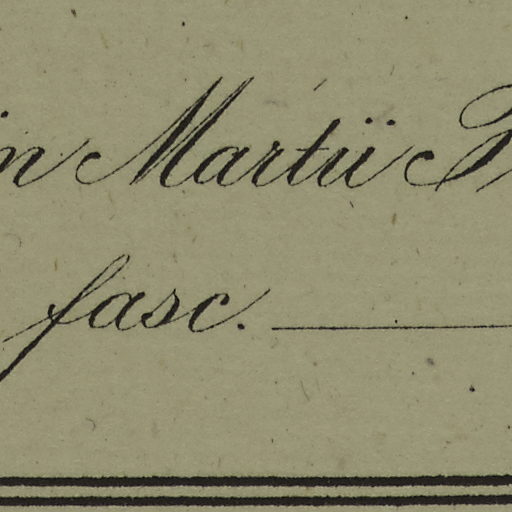 Martii
fasc.